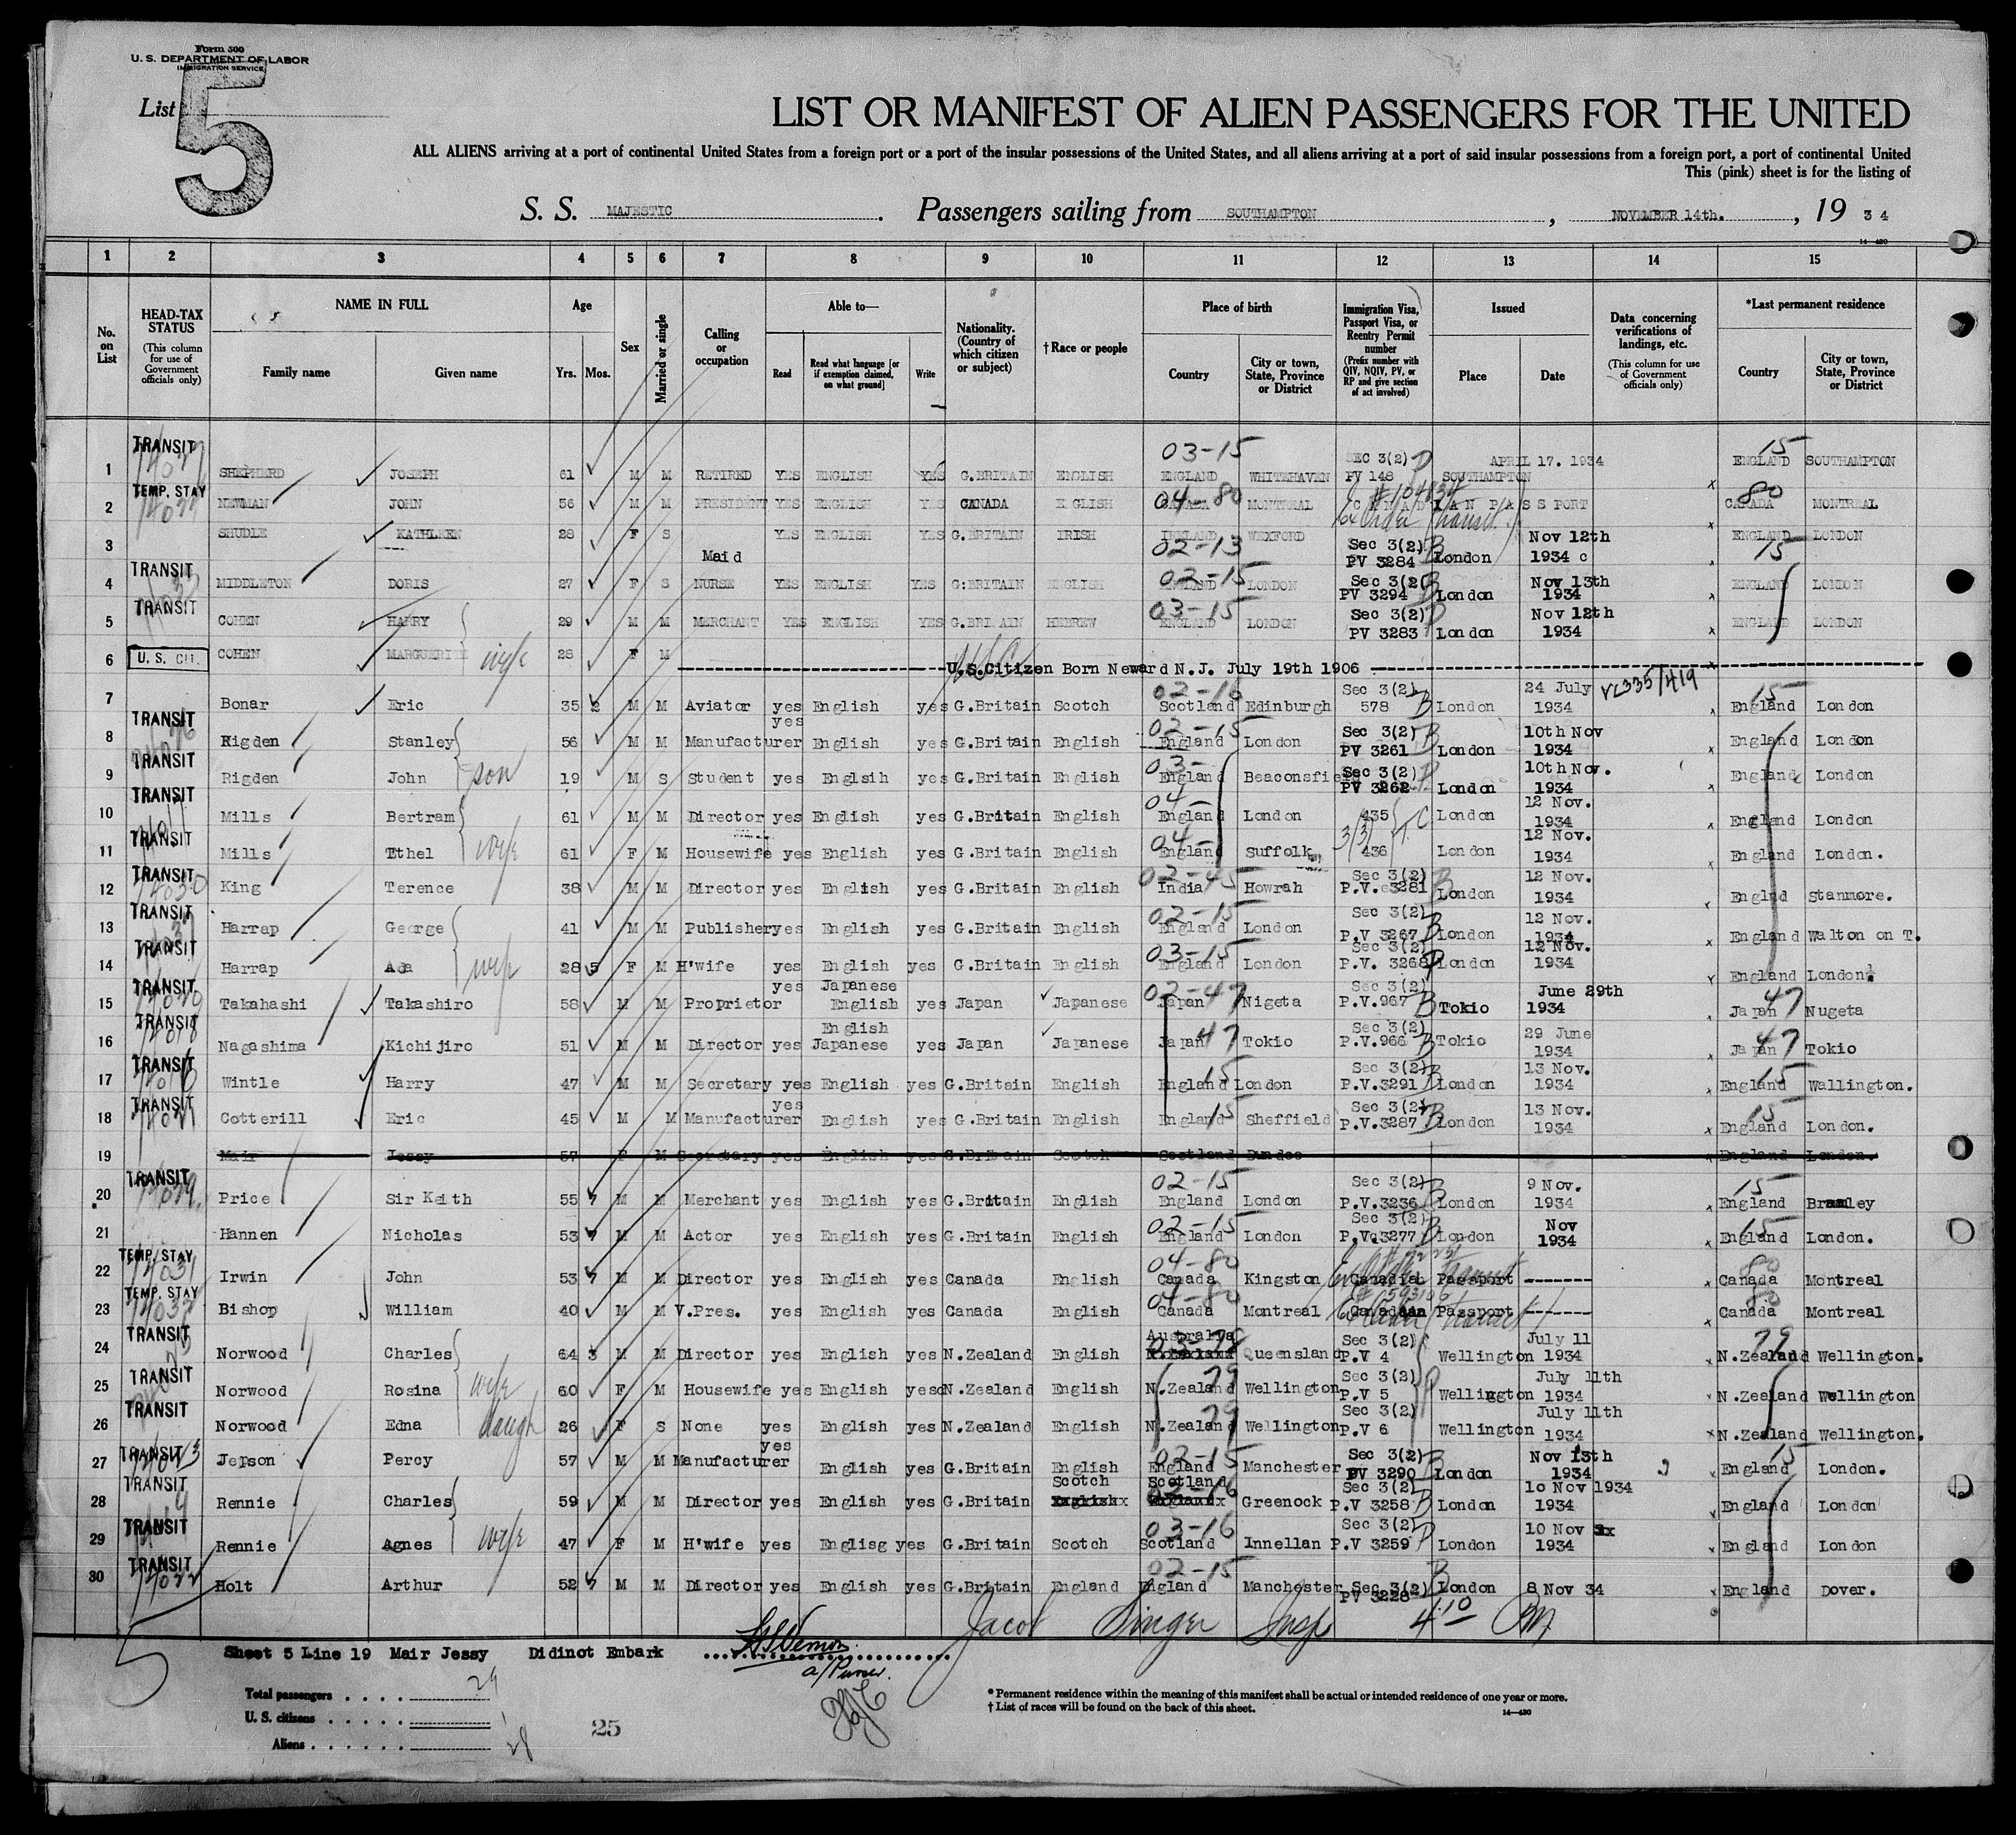 Form 500
U. S. DEPARTMENT OF LABOR
IMMIGRATION SERVICE
List 5
LIST OR MANIFEST OF ALIEN PASSENGERS FOR THE UNITED
ALL ALIENS arriving at a port of continental United States from a foreign port or a port of the insular possessions of the United States, and all aliens arriving at a port of said insular possessions from a foreign port, a port of continental United
This (pink) sheet is for the listing of
S. S. MAJESTIC. Passengers sailing from SOUTHAMPTON, NOVEMBER 14th., 19 34
14-430
1 2 3 4 5 6 7 8 9 10 11 12 13 14 15
No. on List
HEAD-TAX STATUS (This column for use of Government officials only)
NAME IN FULL Family name Given name
Age Yrs. Mos.
Sex
Married or single
Calling or occupation
Able to— Read Read what language [or if exemption claimed, on what ground] Write
Nationality. (Country of which citizen or subject)
†Race or people
Place of birth Country City or town, State, Province or District
Immigration Visa, Passport Visa, or Reentry Permit number (Prefix number with QIV, NQIV, PV, or RP and give section of act involved)
Issued Place Date
Data concerning verifications of landings, etc. (This column for use of Government officials only)
*Last permanent residence Country City or town, State, Province or District
1 TRANSIT SHEPHERD JOSEPH 61 M M RETIRED YES ENGLISH YES G.BRITAIN ENGLISH 03-15 ENGLAND WHITEHAVEN SEC 3(2) PV 148 SOUTHAMPTON APRIL 17. 1934 15 ENGLAND SOUTHAMPTON
2 TEMP. STAY NEWMAN JOHN 56 M M PRESIDENT YES ENGLISH YES CANADA ENGLISH 04-80 CANADA MONTREAL CANADIAN PASSPORT 80 CANADA MONTREAL
3 SHUDLE KATHLEEN 28 F S Maid YES ENGLISH YES G.BRITAIN IRISH 02-13 IRELAND WEXFORD Sec 3(2) PV 3284 London Nov 12th 1934 c ENGLAND LONDON 15
4 TRANSIT MIDDLETON DORIS 27 F S NURSE YES ENGLISH YES G:BRITAIN ENGLISH 02-15 ENGLAND LONDON Sec 3(2( PV 3294 London Nov 13th 1934 ENGLAND LONDON
5 TRANSIT COHEN HARRY 29 M M MERCHANT YES ENGLISH YES G.BRITAIN HEBREW 03-15 ENGLAND LONDON Sec 3(2) PV 3283 London Nov 12th 1934 ENGLAND LONDON
6 U. S. CIT. COHEN MARGUERITE wife 28 F M U.S.Citizen Born Neward N.J. July 19th 1906
7 Bonar Eric 35 2 M M Aviator yes English yes G.Britain Scotch 02-16 Scotland Edinburgh Sec 3(2) 578 B London 24 July 1934 15 England London
8 TRANSIT Rigden Stanley 56 M M Manufacturer yes English yes G.Britain English 02-15 England London Sec 3(2) PV 3261 London 10th Nov 1934 England London
9 TRANSIT Rigden John son 19 M S Student yes Englsih yes G.Britain English 03- England Beaconsfield Sec 3(2) PV 3262 London 10th Nov. 1934 England London
10 TRANSIT Mills Bertram 61 M M Director yes English yes G.Britain English 04- England London 435 London 12 Nov. 1934 England London
11 TRANSIT Mills Ethel wife 61 F M Housewife yes English yes G.Britain English 04- England Suffolk 3/3/ T.C 436 London 12 Nov. 1934 England London.
12 TRANSIT 14030 King Terence 38 M M Director yes English yes G.Britain English 02-45 India Howrah Sec 3(2) P.V.e3281 London 12 Nov. 1934 Englnd Stanmore.
13 TRANSIT Harrap George 41 M M Publisher yes English yes G.Britain English 02-15 England London Sec 3(2) P.V 3267 B London 12 Nov. 1934 England Walton on T.
14 TRANSIT Harrap Ada wife 28 5 F M H'wife yes English yes G.Britain English 03-15 England London Sec 3(2) P.V. 3268 London 12 Nov. 1934 England London.
15 TRANSIT Takahashi Takashiro 58 M M Proprietor yes Japanese English yes Japan Japanese 02-47 Japan Nigeta Sec 3(2) P.V.967 B Tokio June 29th 1934 47 Japan Nugeta
16 TRANSIT 14018 Nagashima Kichijiro 51 M M Director yes English Japanese yes Japan Japanese 47 Japan Tokio Sec 3(2) P.V.966 B Tokio 29 June 1934 47 Japan Tokio
17 TRANSIT Wintle Harry 47 M M Secretary yes English yes G.Britain English 15 England London Sec 3(2) P.V.3291 London 13 Nov. 1934 15 England Wallington.
18 TRANSIT 14021 Cotterill Eric 45 M M Manufacturer yes English yes G.Britain English 15 England Sheffield Sec 3(2) P.V.3287 B London 13 Nov. 1934 15 England London.
19 Mair Jessy 57 F M Secretary yes English yes G.Britain Scotch Scotland Dundee England London.
20 TRANSIT 14029 Price Sir Keith 55 7 M M Merchant yes English yes G.Britain English 02-15 England London Sec 3(2) P.V.3236 London 9 Nov. 1934 15 England Bramley
21 Hannen Nicholas 53 7 M M Actor yes English yes G.Britain English 02-15 England London Sec 3(2) P.V.3277 London Nov 1934 15 England London.
22 TEMP. STAY 14031 Irwin John 53 7 M M Director yes English yes Canada English 04-80 Canada Kingston Canadian Passport ------- 80 Canada Montreal
23 TEMP. STAY 14032 Bishop William 40 M M V.Pres. yes English yes Canada English 04-80 Canada Montreal Canadian Passport ------- 80 Canada Montreal
24 TRANSIT Norwood Charles 64 3 M M Director yes English yes N.Zealand English 03-78 Australia Queensland Sec 3(2) P.V 4 Wellington July 11 1934 79 N.Zealand Wellington.
25 TRANSIT Norwood Rosina wife 60 F M Housewife yes English yes N.Zealand English 79 N.Zealand Wellington Sec 3(2) P.V 5 Wellington July 11th 1934 N.Zealand Wellington
26 TRANSIT Norwood Edna daugh 26 F S None yes English yes N.Zealand English 79 N.Zealand Wellington Sec 3(2) P.V 6 Wellington July 11th 1934 N.Zealand Wellington.
27 TRANSIT Jepson Percy 57 M M Manufacturer yes English yes G.Britain English 02-15 England Manchester Sec 3(2) PV 3290 London Nov 13th 1934 15 England London.
28 TRANSIT Rennie Charles 59 M M Director yes English yes G.Britain Scotch Scotland 02-16 Greenock Sec 3(2) P.V 3258 B London 10 Nov 1934 1934 England London
29 TRANSIT Rennie Agnes wife 47 F M H'wife yes Englisg yes G.Britain Scotch 03-16 Scotland Innellan Sec 3(2) P.V 3259 London 10 Nov 1934 England London
30 TRANSIT 14022 Holt Arthur 52 7 M M Director yes English yes G.Britain England 02-15 England Manchester Sec 3(2) PV 3228 B London 8 Nov 34 England Dover.
Jacob Singer Insp 4:10 PM
5 Sheet 5 Line 19 Mair Jessy Didinot Embark
a/Purser.
Total passengers . . . . 29
U. S. citizens . . . . . 1
Aliens . . . . . . 28
25
* Permanent residence within the meaning of this manifest shall be actual or intended residence of one year or more.
† List of races will be found on the back of this sheet.
14-430